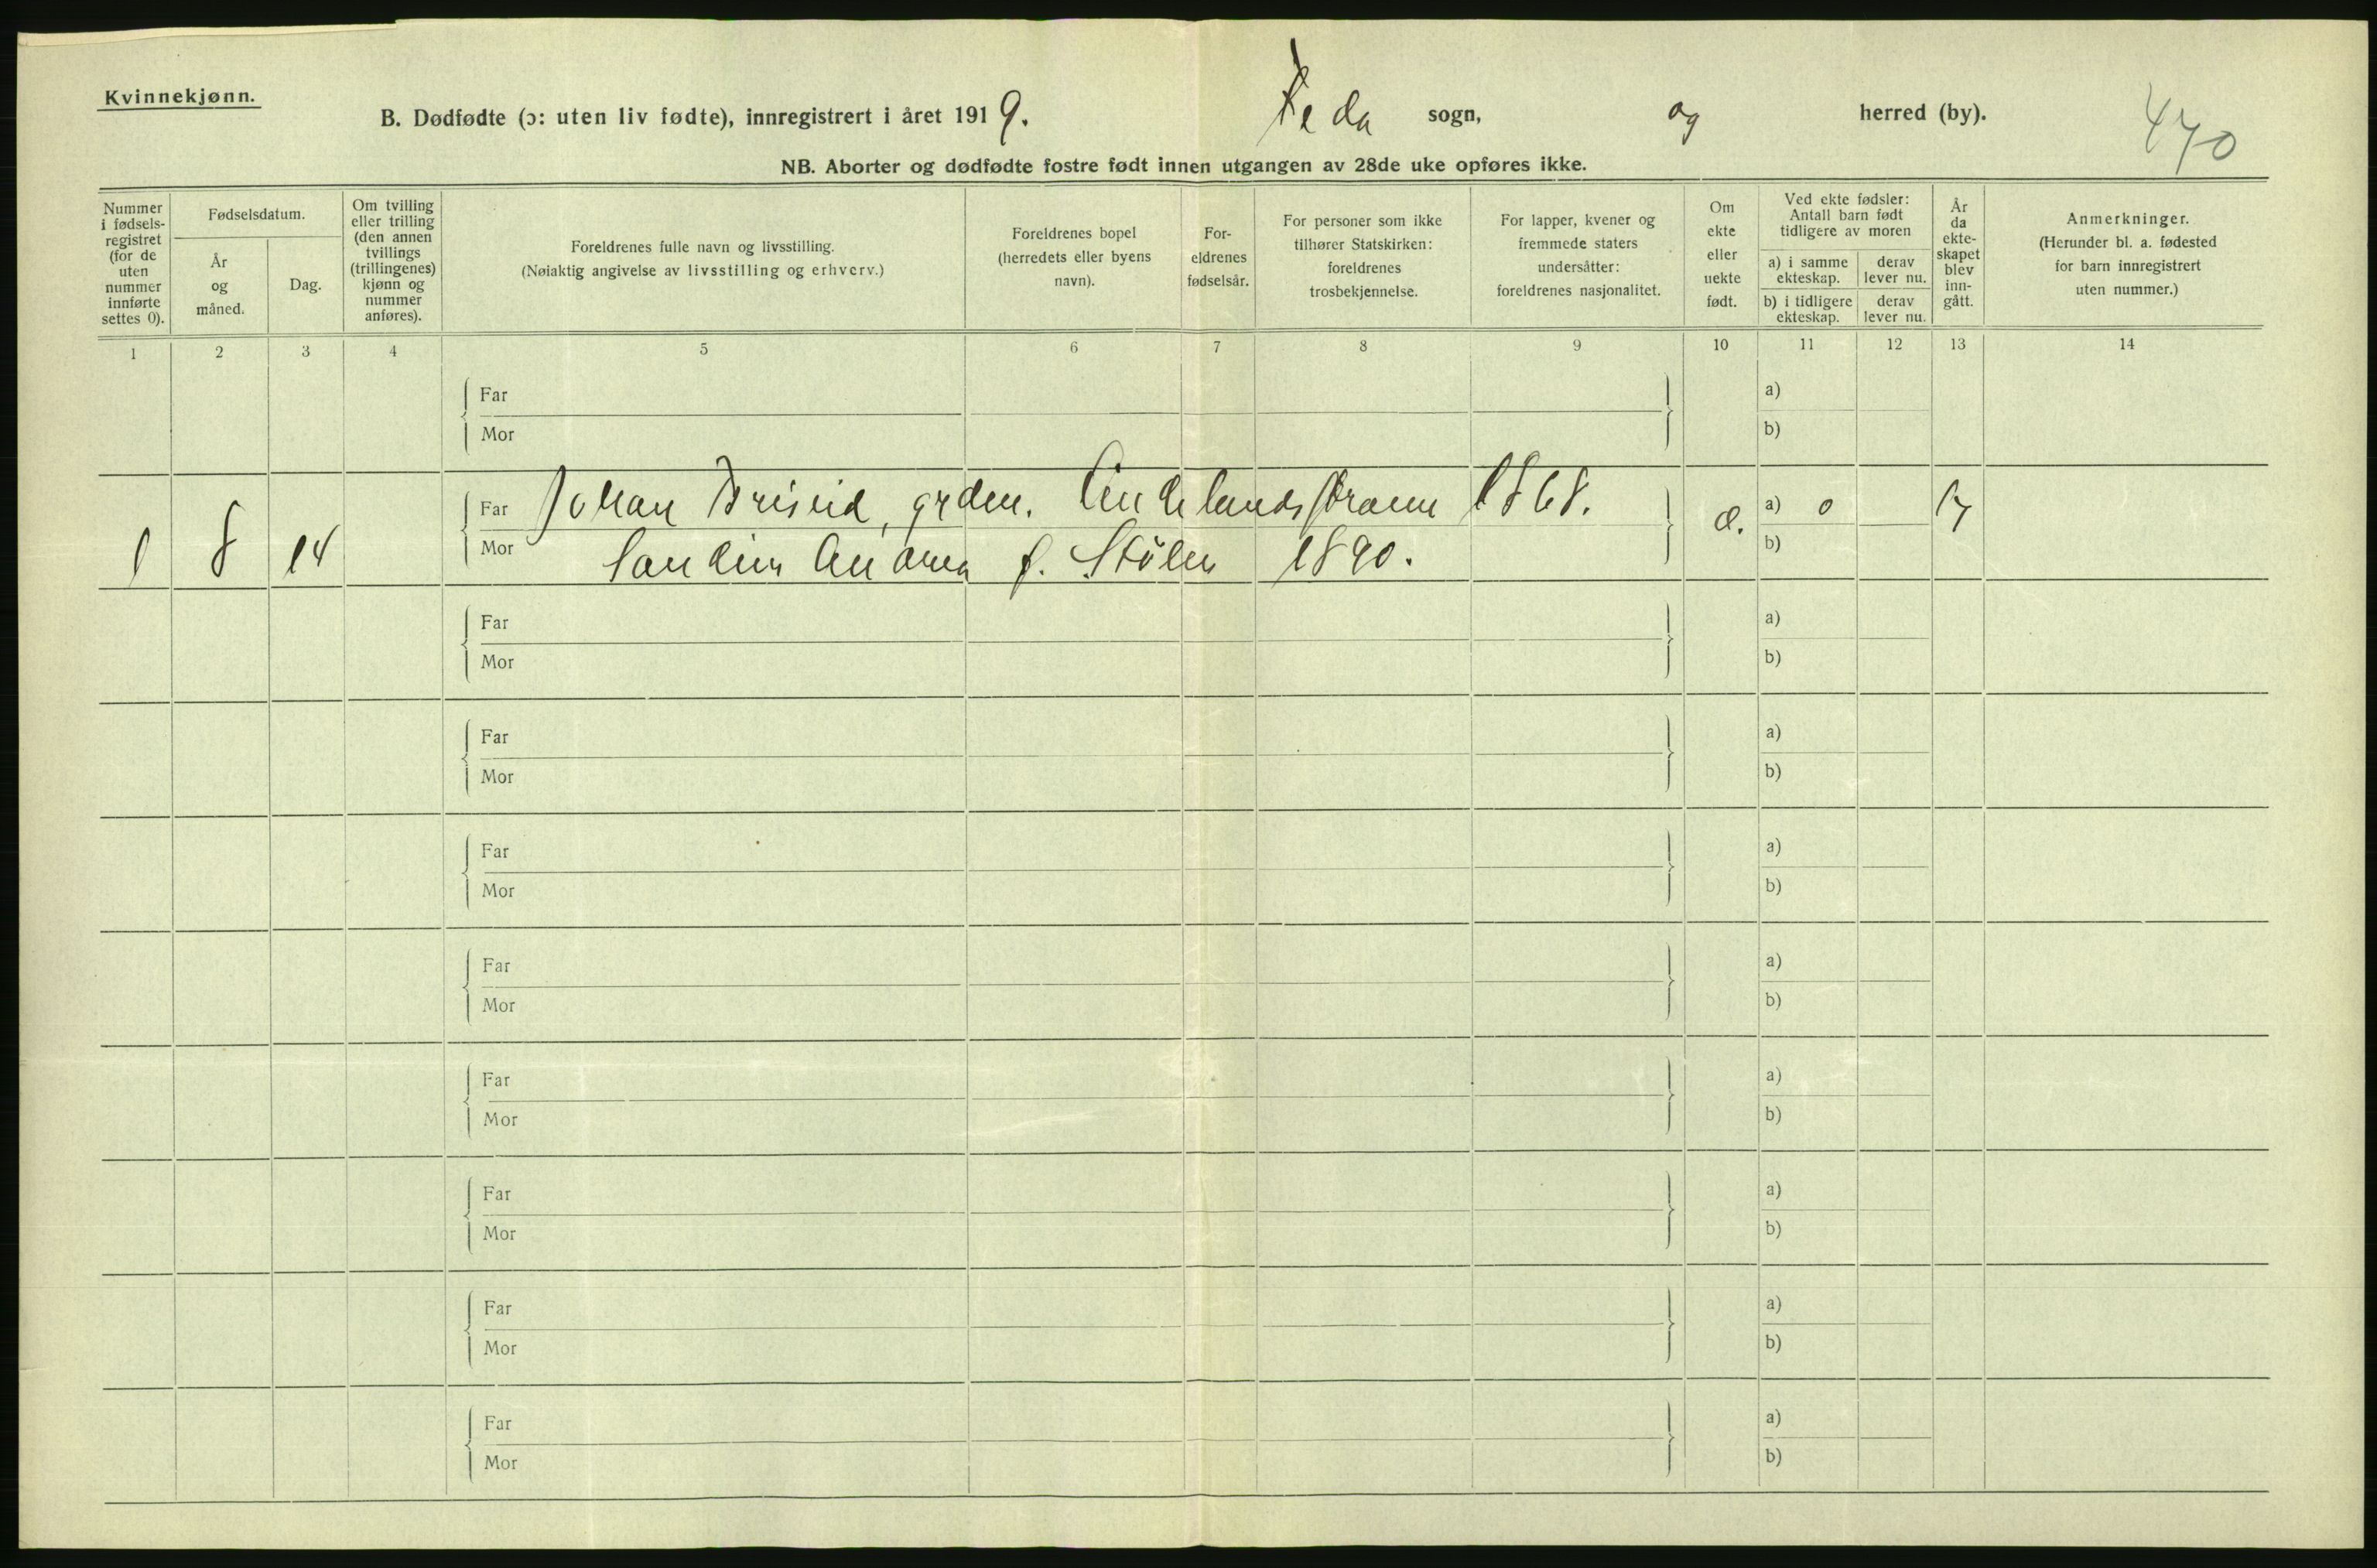 Kvinnekjønn.
B. Dødfødte (ɔ: uten liv fødte), innregistrert i året 1919. Feda sogn, og herred (by). 470
NB. Aborter og dødfødte fostre født innen utgangen av 28de uke opføres ikke.
Nummer i fødselsregistret (for de uten nummer innførte settes 0).
Fødselsdatum.
År og måned.
Dag.
Om tvilling eller trilling (den annen tvillings (trillingenes) kjønn og nummer anføres).
Foreldrenes fulle navn og livsstilling.
(Nøiaktig angivelse av livsstilling og erhverv.)
Foreldrenes bopel (herredets eller byens navn).
Foreldrenes fødselsår.
For personer som ikke tilhører Statskirken: foreldrenes trosbekjennelse.
For lapper, kvener og fremmede staters undersåtter: foreldrenes nasjonalitet.
Om ekte eller uekte født.
Ved ekte fødsler: Antall barn født tidligere av moren
a) i samme ekteskap. derav lever nu.
b) i tidligere ekteskap. derav lever nu.
År da ekteskapet blev inngått.
Anmerkninger.
(Herunder bl. a. fødested for barn innregistrert uten nummer.)
1 2 3 4 5 6 7 8 9 10 11 12 13 14
Far a)
Mor b)
Far Johan grdm. 1868. a) 0 17
1 8 14 Mor Andrea f. Stølen 1890. b)
Far a)
Mor b)
Far a)
Mor b)
Far a)
Mor b)
Far a)
Mor b)
Far a)
Mor b)
Far a)
Mor b)
Far a)
Mor b)
Far a)
Mor b)